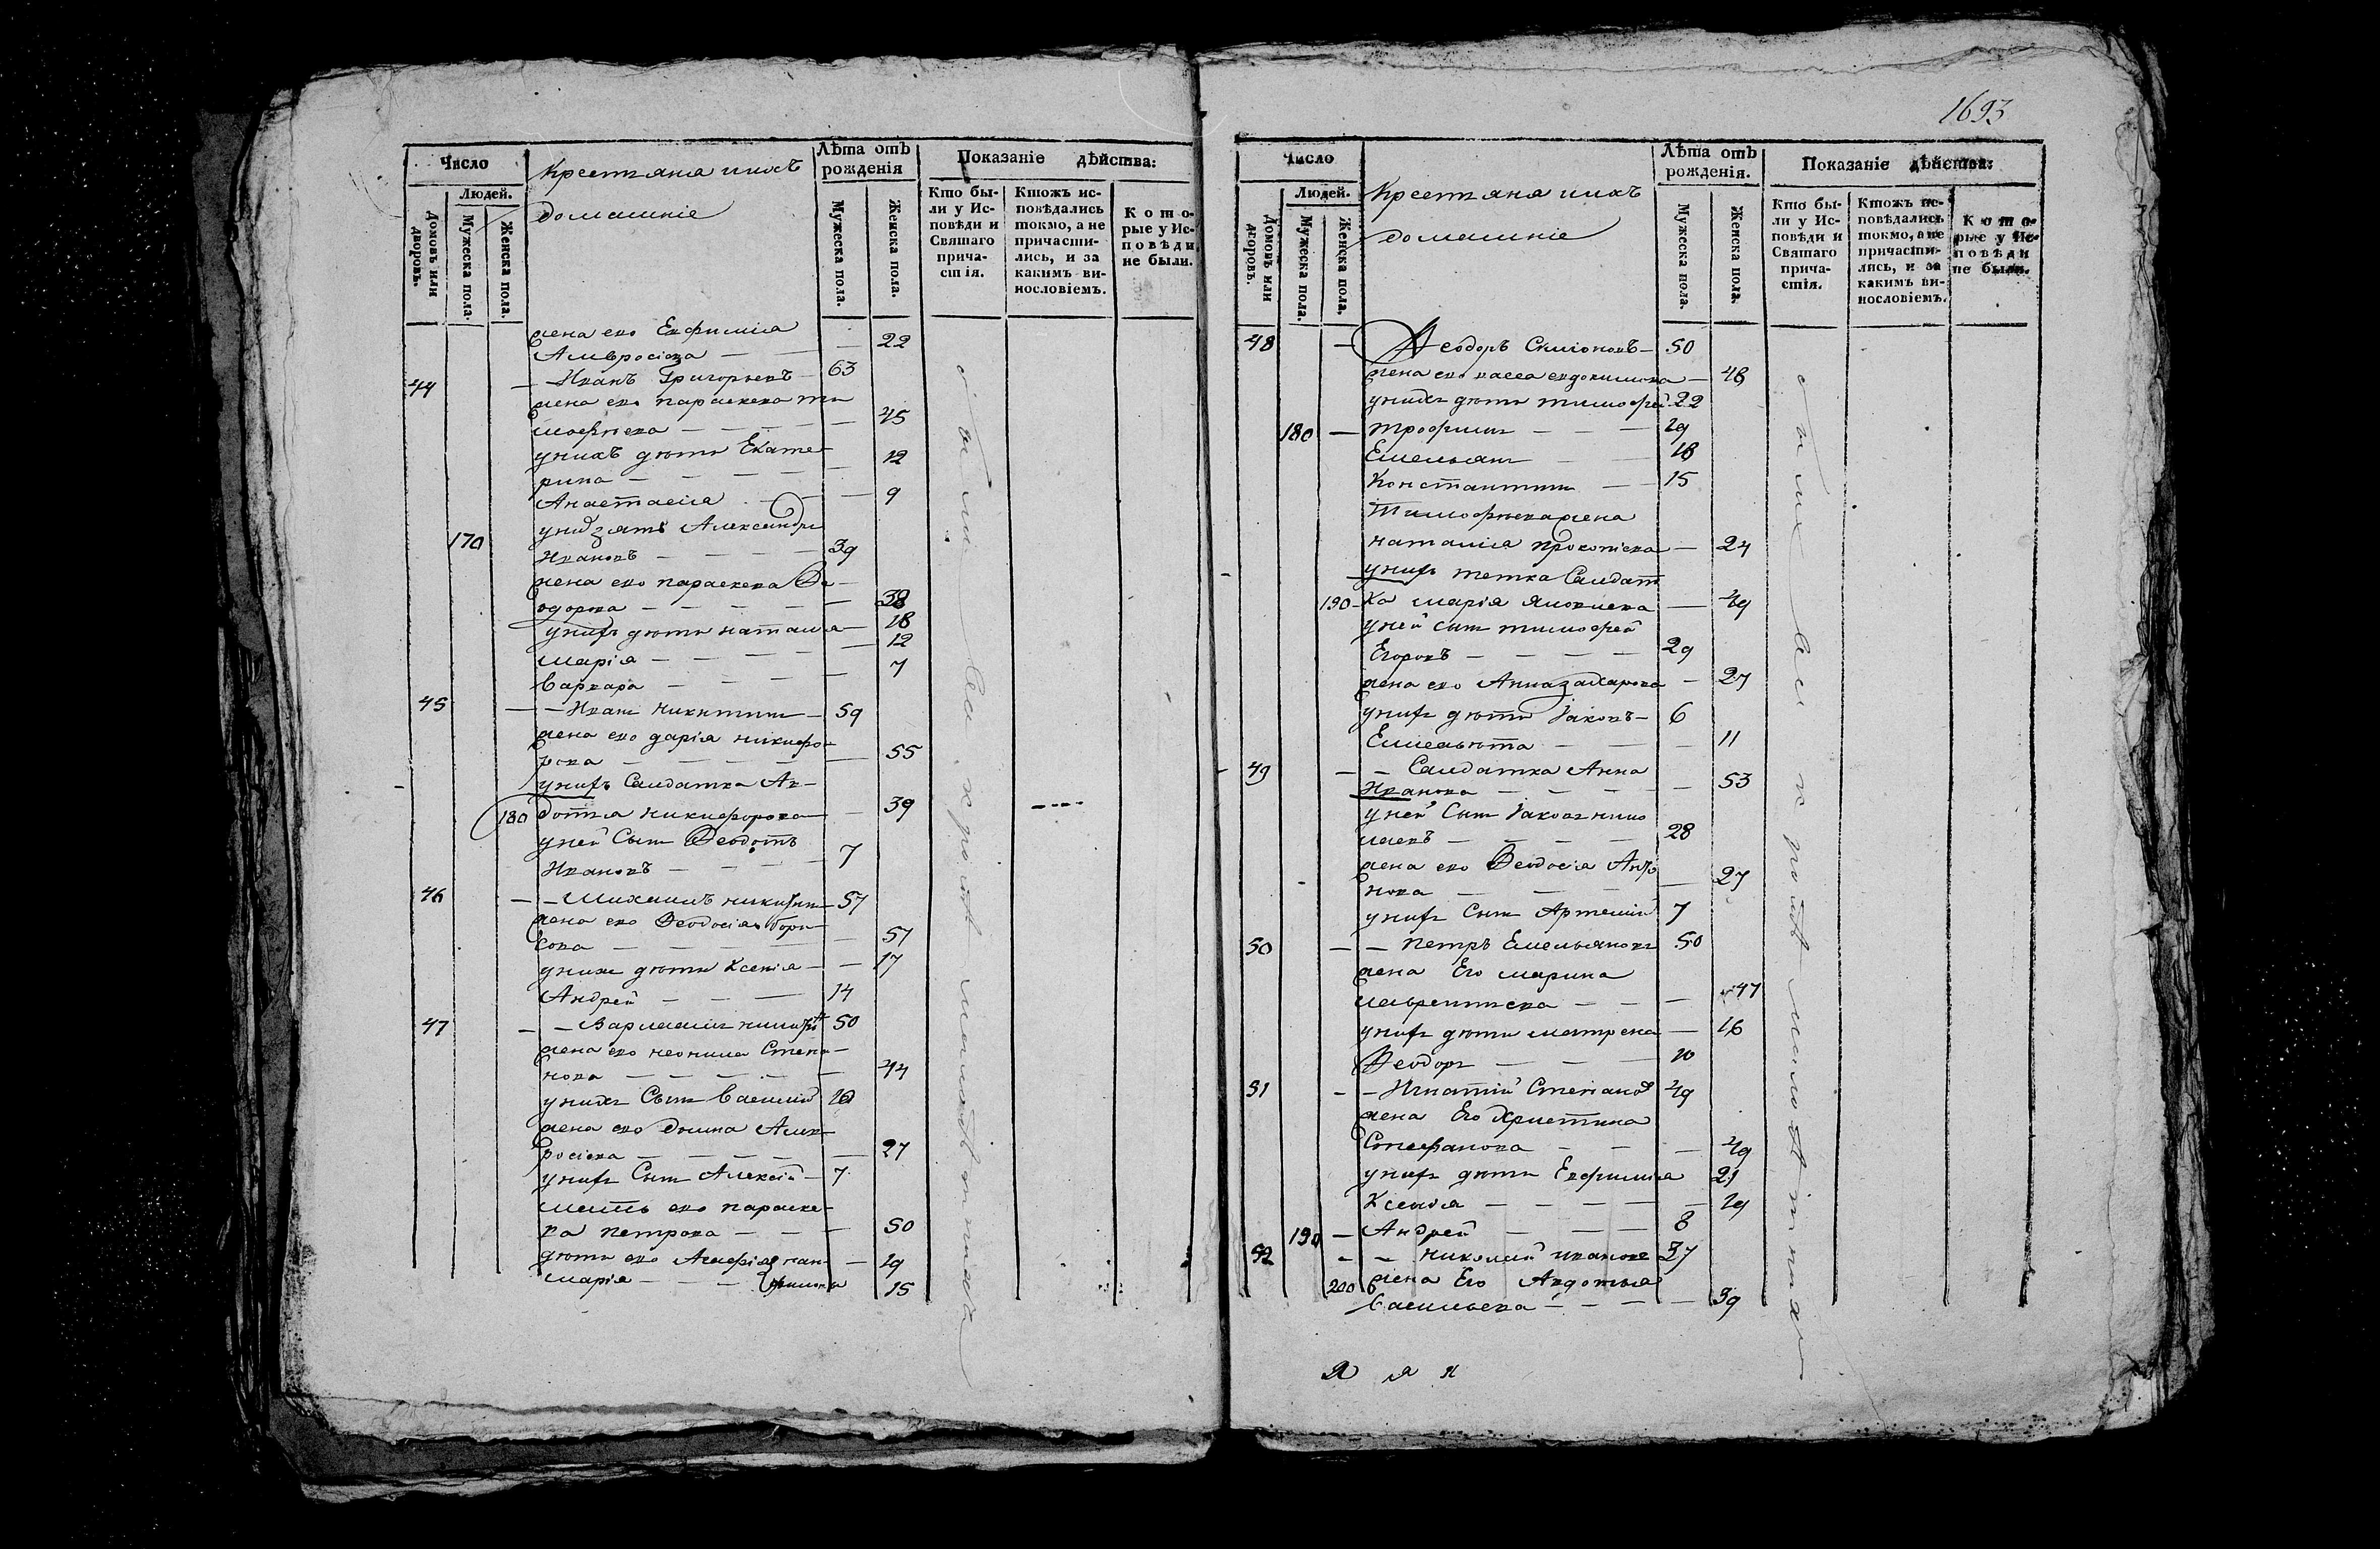 1693
Число
Людей.
Домовъ или дворовъ.
Мужеска пола.
Женска пола.
Крестьяна ихъ
домашніе
Лѣта отъ рожденія
Мужеска пола.
Женска пола.
Показаніе дѣйства:
Кто были у Исповѣди и Святаго причастія.
Ктожъ исповѣдались токмо, а не причастились, и за какимъ винословіемъ.
Которые у Исповѣди не были.
жена ево Евфимиіа
Амвросіева — — — 22
44 — Иванъ Григорьевъ — 63
жена ево параскева ти
мофѣева — — — 45
унихъ дѣти Екате
рина — — — 12
Анастасіа — — — 9
зять Александръ
170 Ивановъ — — — 39
жена ево параскева Ѳе
одорова — — — 38
унихъ дѣти наталіа — 18
маріа — — — 12
варвара — — — 7
45 — Иванъ никитинъ — 59
жена ево даріа никифо
рова — — — 55
унихъ Салдатка Ав
180 дотья никифорова — 39
уней Сынъ Ѳеодотъ
Ивановъ — — — 7
46 — Михаилъ никитинъ — 57
жена ево Ѳеодосіа бори
сова — — — 57
унихъ дѣти Ксеніа — 17
Андрей — — — 14
47 — Варлаамъ 50
жена ево неонила Степа
нова — — — 44
унихъ Сынъ василій
жена ево домна Амв
росіева — — — 27
унихъ Сынъ Алексій — 7
мать ево параске
ва петрова — — — 50
дѣти ево — 19
маріа — — — 15
Число
Людей.
Домовъ или дворовъ.
Мужеска пола.
Женска пола.
Крестьяна ихъ
домашніе
Лѣта отъ рожденія.
Мужеска пола.
Женска пола.
Показаніе дѣйства:
Кто были у Исповѣди и Святаго причастія.
Ктожъ исповѣдались токмо, а не причастились, и за какимъ винословіемъ.
Которые у Исповѣди не были.
48 — Ѳеодоръ Симіоновъ — 50
жена ево васса евдокимова — 48
унихъ дѣти тимофей 22
180 — трофимъ — — — 19
Емельянъ — — 18
Константинъ — — 15
Тимофѣева жена
наталіа прокопіева — 24
унихъ тетка Салдат
190 — ка маріа яковлева — 49
уней сынъ тимофей
Егоровъ — — — 29
жена ево Анна захарова — 27
унихъ дѣти Іаковъ — 6
— — — 11
49 — — Салдатка Анна
Иванова — — — 53
уней Сынъ Іаковъ нико
лаевъ — — — 28
жена ево Ѳеодосіа
нова — — — 27
унихъ Сынъ Артемій 7
50 — — петръ Емельяновъ 50
жена Его марина
лаврентьева — — — 47
унихъ дѣти матрена — 16
Ѳеодоръ — — — 10
51 — — Игнатій Степанов 49
жена Его Христина
Стефанова — — — 49
унихъ дѣти Евфиміа 21
Ксеніа — — — 19
190 — Андрей — — — 8
52 — — николай ивановъ 37
200 жена Его Авдотья
васильева — — — 39